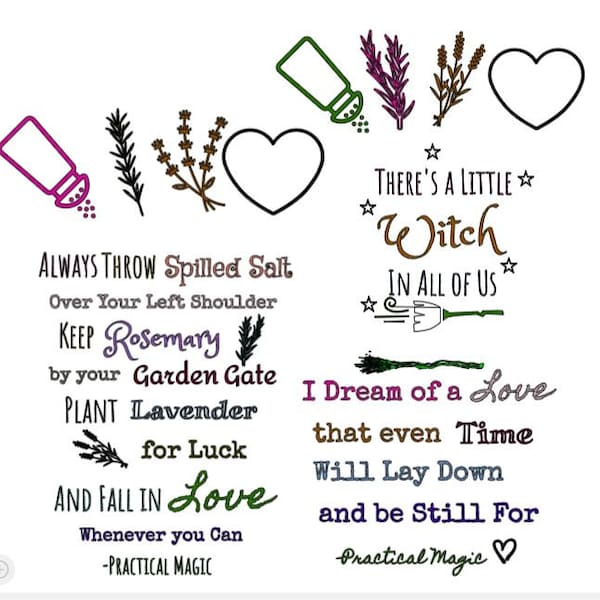 Always Throw Spilled Salt
Over Your Left Shoulder
Keep Rosemary
by your Garden Gate
Plant Lavender
for Luck
And Fall in Love
Whenever you Can
-Practical Magic
There's a Little
Witch
In All of Us
I Dream of a Love
that even Time
Will Lay Down
and be Still For
-Practical Magic